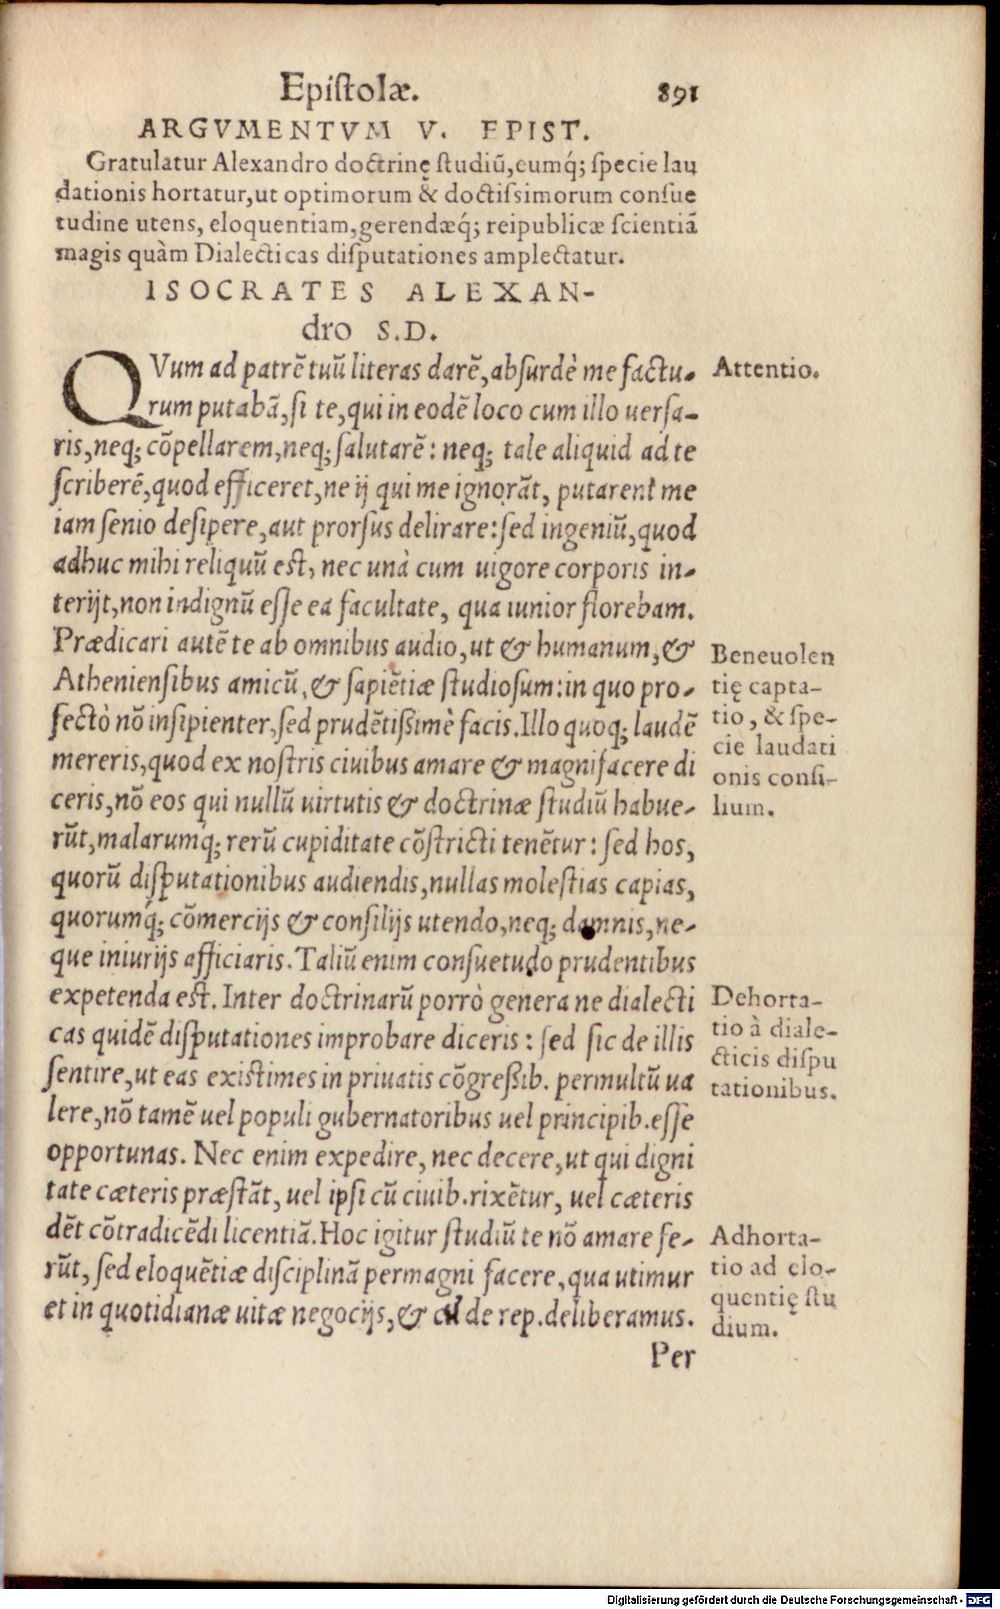 Epistolæ. 891
ARGVMENTVM V. EPIST.
Gratulatur Alexandro doctrinę studiũ,eumq́; specie lau
dationis hortatur,ut optimorum & doctissimorum consue
tudine utens, eloquentiam,gerendæq́; reipublicæ scientiã
magis quàm Dialecticas disputationes amplectatur.
ISOCRATES ALEXAN-
dro S.D.
QVum ad patrẽ tuũ literas darẽ,absurdè me factu-
rum putabã,si te,qui in eodẽ loco cum illo uersa-
ris,neq; cõpellarem,neq; salutarẽ: neq; tale aliquid ad te
scriberẽ,quod efficeret,ne ij qui me ignorãt, putarent me
iam senio desipere,aut prorsus delirare:sed ingeniũ,quod
adhuc mihi reliquũ est, nec unà cum uigore corporis in-
terijt,non indignũ esse ea facultate, qua iunior florebam.
Prædicari autẽ te ab omnibus audio,ut & humanum,&
Atheniensibus amicũ,& sapiẽtiæ studiosum:in quo pro-
fectò nõ insipienter,sed prudẽtissimè facis.Illo quoq; laudẽ
mereris,quod ex nostris ciuibus amare & magnifacere di
ceris,nõ eos qui nullũ uirtutis & doctrinæ studiũ habue-
rũt,malarumq́; rerũ cupiditate cõstricti tenẽtur: sed hos,
quorũ disputationibus audiendis,nullas molestias capias,
quorumq́; cõmercijs & consilijs utendo,neq; damnis,ne-
que iniurijs afficiaris.Taliũ enim consuetudo prudentibus
expetenda est. Inter doctrinarũ porrò genera ne dialecti
cas quidẽ disputationes improbare diceris: sed sic de illis
sentire,ut eas existimes in priuatis cõgressib. permultũ ua
lere,nõ tamẽ uel populi gubernatoribus uel principib.esse
opportunas. Nec enim expedire, nec decere,ut qui digni
tate cæteris præstãt, uel ipsi cũ ciuib.rixẽtur, uel cæteris
dẽt cõtradicẽdi licentiã.Hoc igitur studiũ te nõ amare fe-
rũt, sed eloquẽtiæ disciplinã permagni facere,qua utimur
et in quotidianæ uitæ negocijs,& cũ de rep.deliberamus.
Per
Attentio.
Beneuolen
tię capta-
tio, & spe-
cie laudati
onis consi-
lium.
Dehorta-
tio à diale-
cticis dispu
tationibus.
Adhorta-
tio ad elo-
quentię stu
dium.
Digitalisierung gefördert durch die Deutsche Forschungsgemeinschaft - DFG